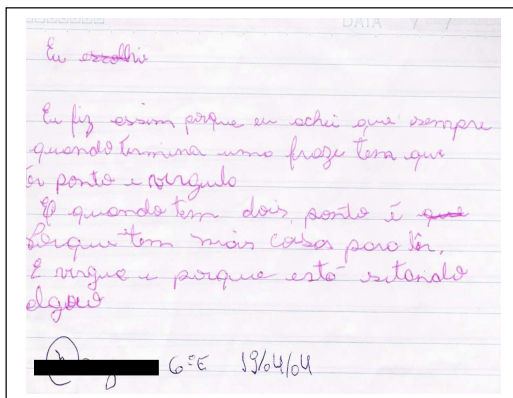 DATA / /
Eu escolhi
Eu fiz assim porque eu achei que sempre
quando termina uma fraze tem que
ter ponto e virgula
E quando tem dois ponto é que
Porque tem mais coisa para ler.
E virgua e porque está sitando
algou
6ºE 19/04/04